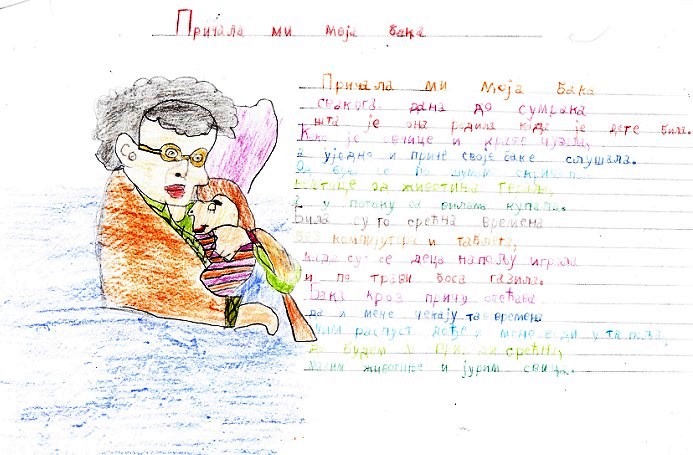 Причала ми моја бака
Причала ми моја бака
свакога дана до сумрака
шта је она радила када је дете била.
Како је овчице и краве чувала,
а уједно и приче своје баке слушала.
по шумама
од животиња
а у потоку са вилама купала.
Била су то срећна времена
без компјутера и таблета,
када су се деца напољу играла
и по трави боса газила.
Бака кроз причу обећава
да и мене чекају та времена
распуст дође и мене води у та поља,
да будем и ја срећна,
животиње и јурим свица.